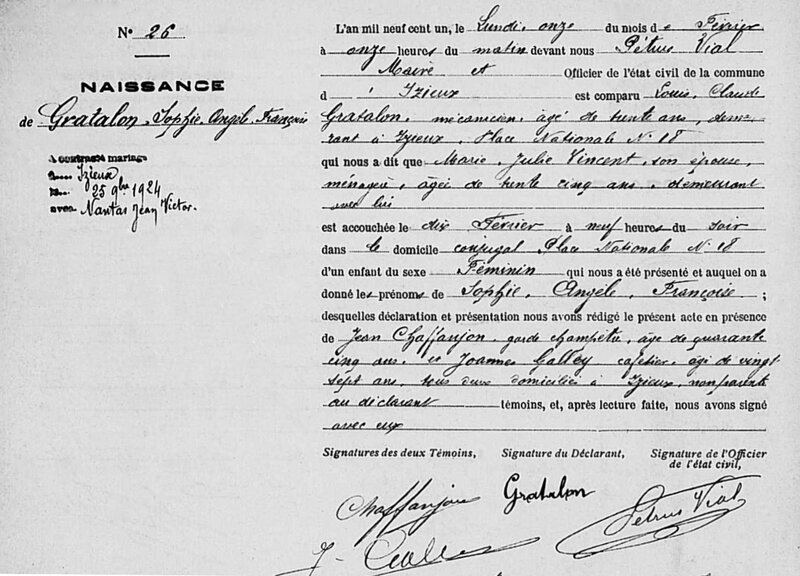 N° 26
NAISSANCE
de Gratalon, Sophie, Angèle, Françoise
A contracté mariage
à Izieux
le 25 9bre 1924
avec Nantas Jean Victor.
L'an mil neuf cent un, le Lundi, onze du mois de Février
à onze heures du matin devant nous Pétrus Vial
Maire et Officier de l'état civil de la commune
d' Izieux est comparu Louis, Claude
Gratalon, mécanicien, âgé de trente ans, demeu
rant à Izieux, Place Nationale N° 18
qui nous a dit que Marie, Julie Vincent, son épouse,
ménagère, âgée de trente cinq ans, demeurant
avec lui
est accouchée le dix Février à neuf heures du soir
dans le domicile conjugal Place Nationale N° 18
d'un enfant du sexe Féminin qui nous a été présenté et auquel on a
donné les prénoms de Sophie, Angèle, Françoise ;
desquelles déclaration et présentation nous avons rédigé le présent acte en présence
de Jean Chaffanjon, garde champêtre, âgé de quarante
cinq ans, et Joannes Galley cafetier, âgé de vingt
sept ans, tous deux domiciliés à Izieux, non parents
au déclarant témoins, et, après lecture faite, nous avons signé
avec eux
Signatures des deux Témoins, Signature du Déclarant, Signature de l'Officier
de l'état civil,
Chaffanjon Gratalon Petrus Vial